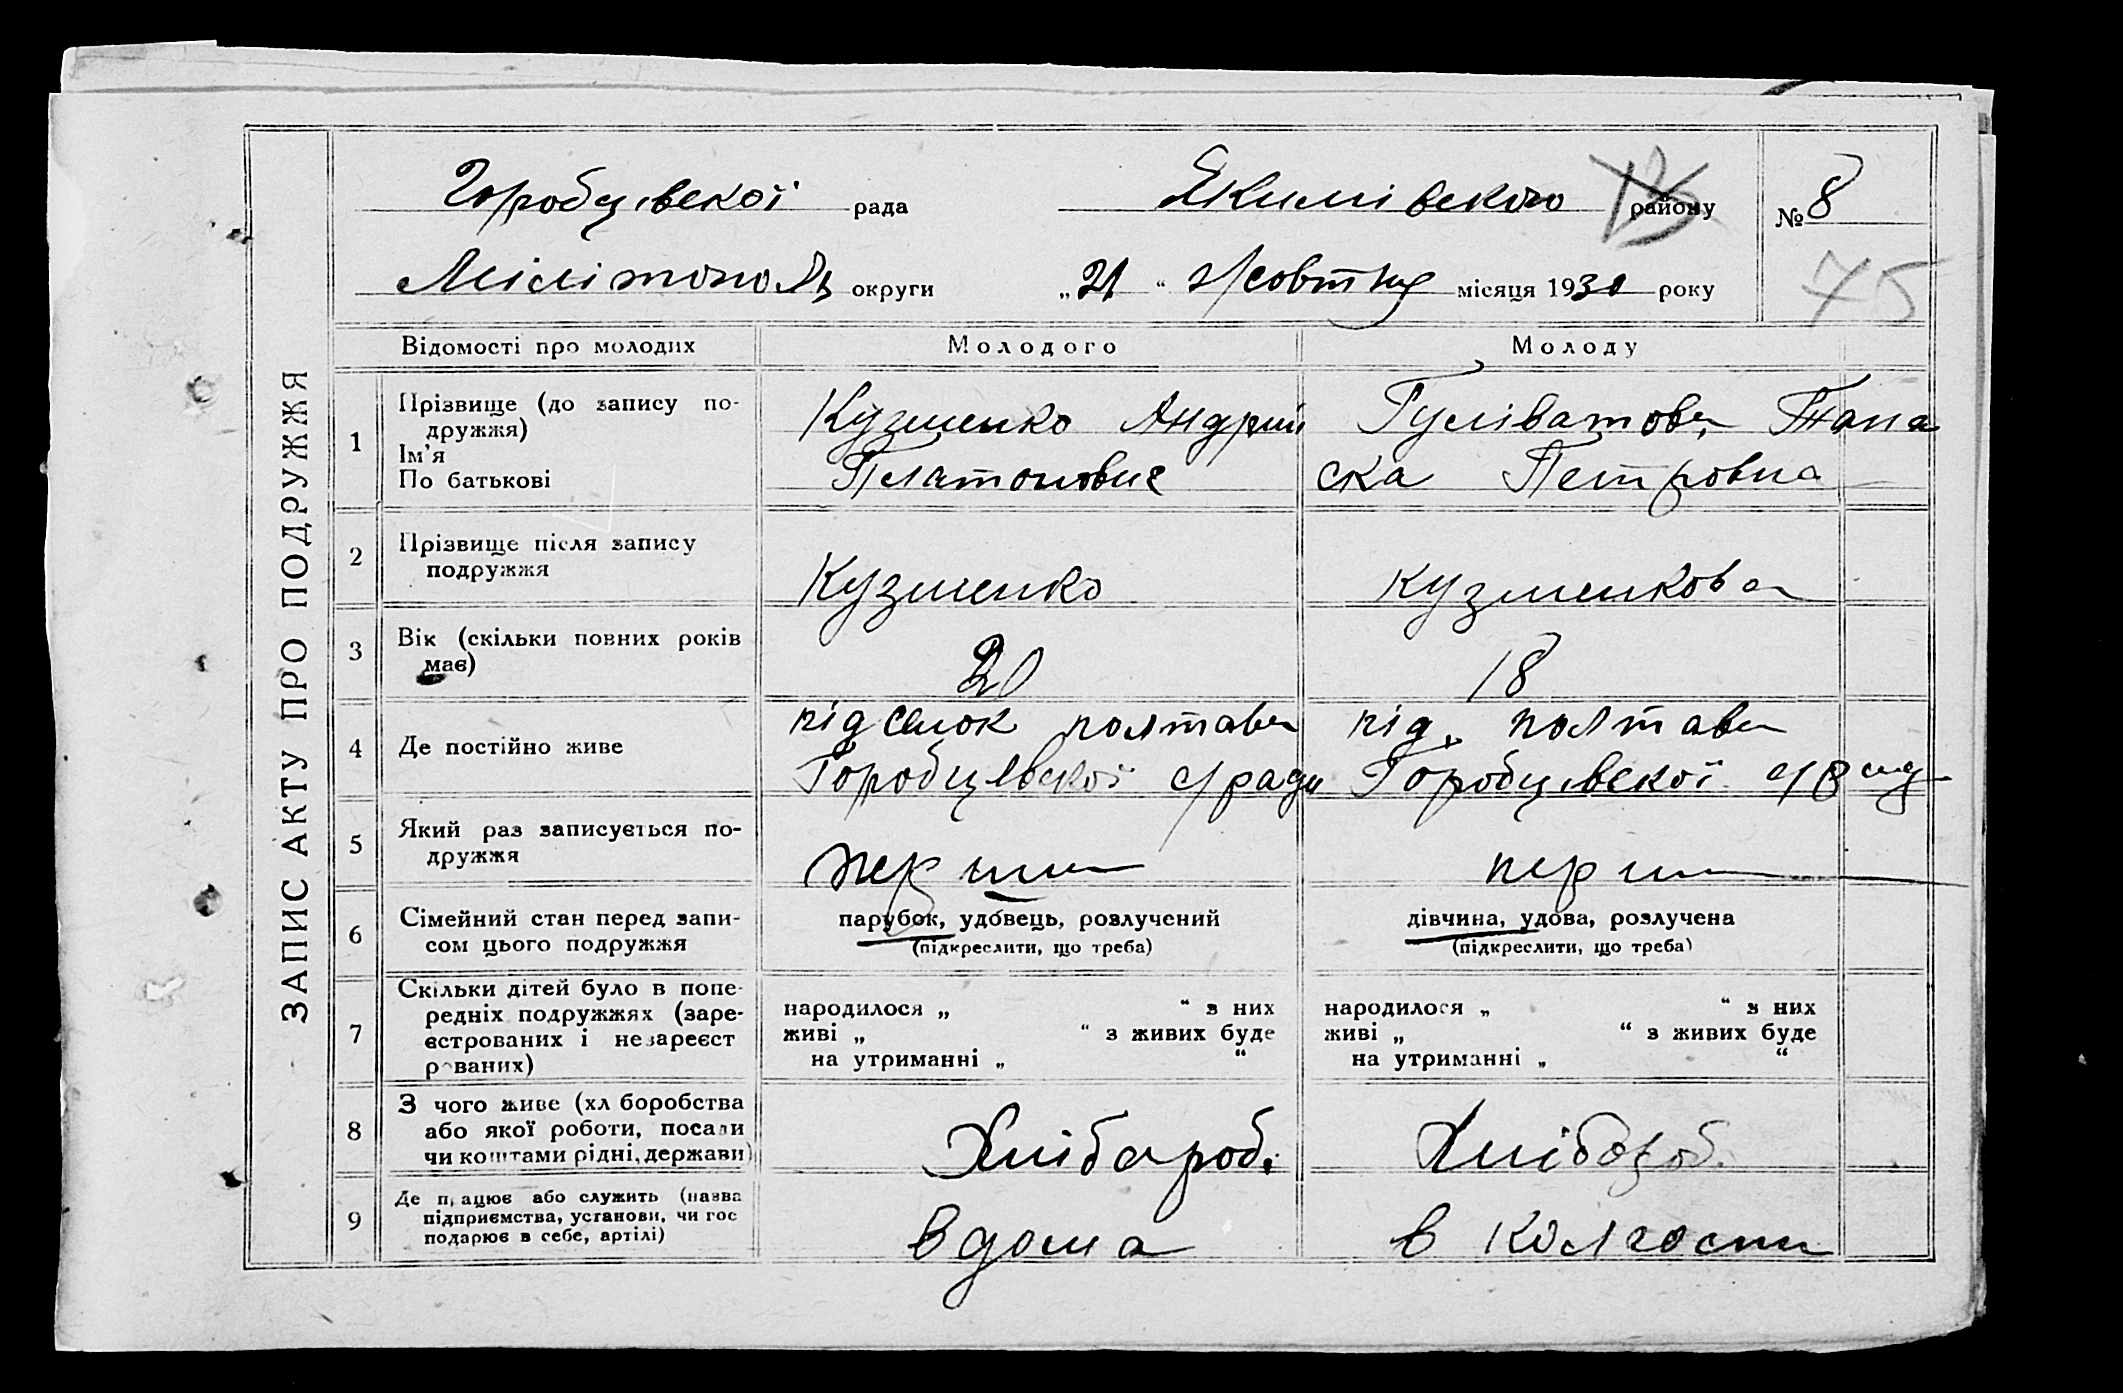 ЗАПИС АКТУ ПРО ПОДРУЖЖЯ
Горобцівскої рада Якимівского району № 8
Мілітополь округи „21“ Жовтня місяця 1930 року 75
Відомості про молодих Молодого Молоду
1 Прізвище (до запису по-
дружжя)
Ім’я
По батькові
Кузменко Андрий
Платонович
Гуліватова Пана
ска Петровна
2 Прізвище після запису
подружжя
Кузменко
кузменкова
3 Вік (скільки повних років
має)
20
18
4 Де постійно живе
підселок полтава
Горобцівскої с/ради
під. полтава
Горобцівскої с/рад
5 Який раз записується по-
дружжя
перши
перши
6 Сімейний стан перед запи-
сом цього подружжя
парубок, удовець, розлучений
(підкреслити, що треба)
дівчина, удова, розлучена
(підкреслити, що треба)
7 Скільки дітей було в попе-
редніх подружжях (заре-
єстрованих і незареєст
рованих)
народилося „ “ з них
живі „ “ з живих буде
на утриманні „ “
народилося „ “ з них
живі „ “ з живих буде
на утриманні „ “
8 З чого живе (хл боробства
або якої роботи, посади
чи коштами рідні, держави)
Хлібороб.
Хлібороб.
9 Де працює або служить (назва
підприємства, установи, чи гос
подарює в себе, артілі)
вдома
в колгоспи